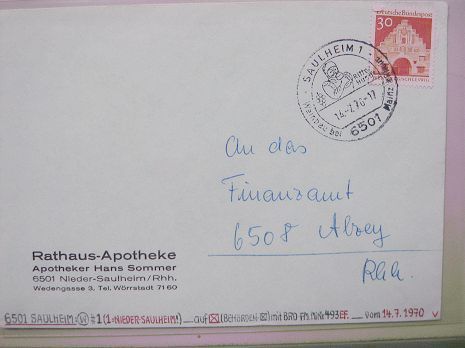 30
Deutsche Bundespost
SAULHEIM 1
14.-7.70-17
Weinbau bei
Mainz
6501
An das
Finanzamt
6508 Alzey
Rhh.
Rathaus-Apotheke
Apotheker Hans Sommer
6501 Nieder-Saulheim/Rhh.
Wedengasse 3, Tel. Wörrstadt 71 60
6501 SAULHEIM 1 (1=NIEDER-SAULHEIM!) auf (BEHÖRDEN) mit BRD MiNr 493 EF. vom 14.7.1970